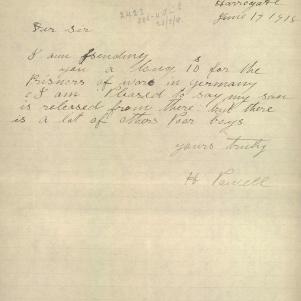 Harrogate
June 17 1918
Dear Sir
I am sending
you a 10 s for the
Prisners of in Germany
I am Pleased to say my son
is released from there but there
is a lot of others Poor boys
yours truly
H Powell